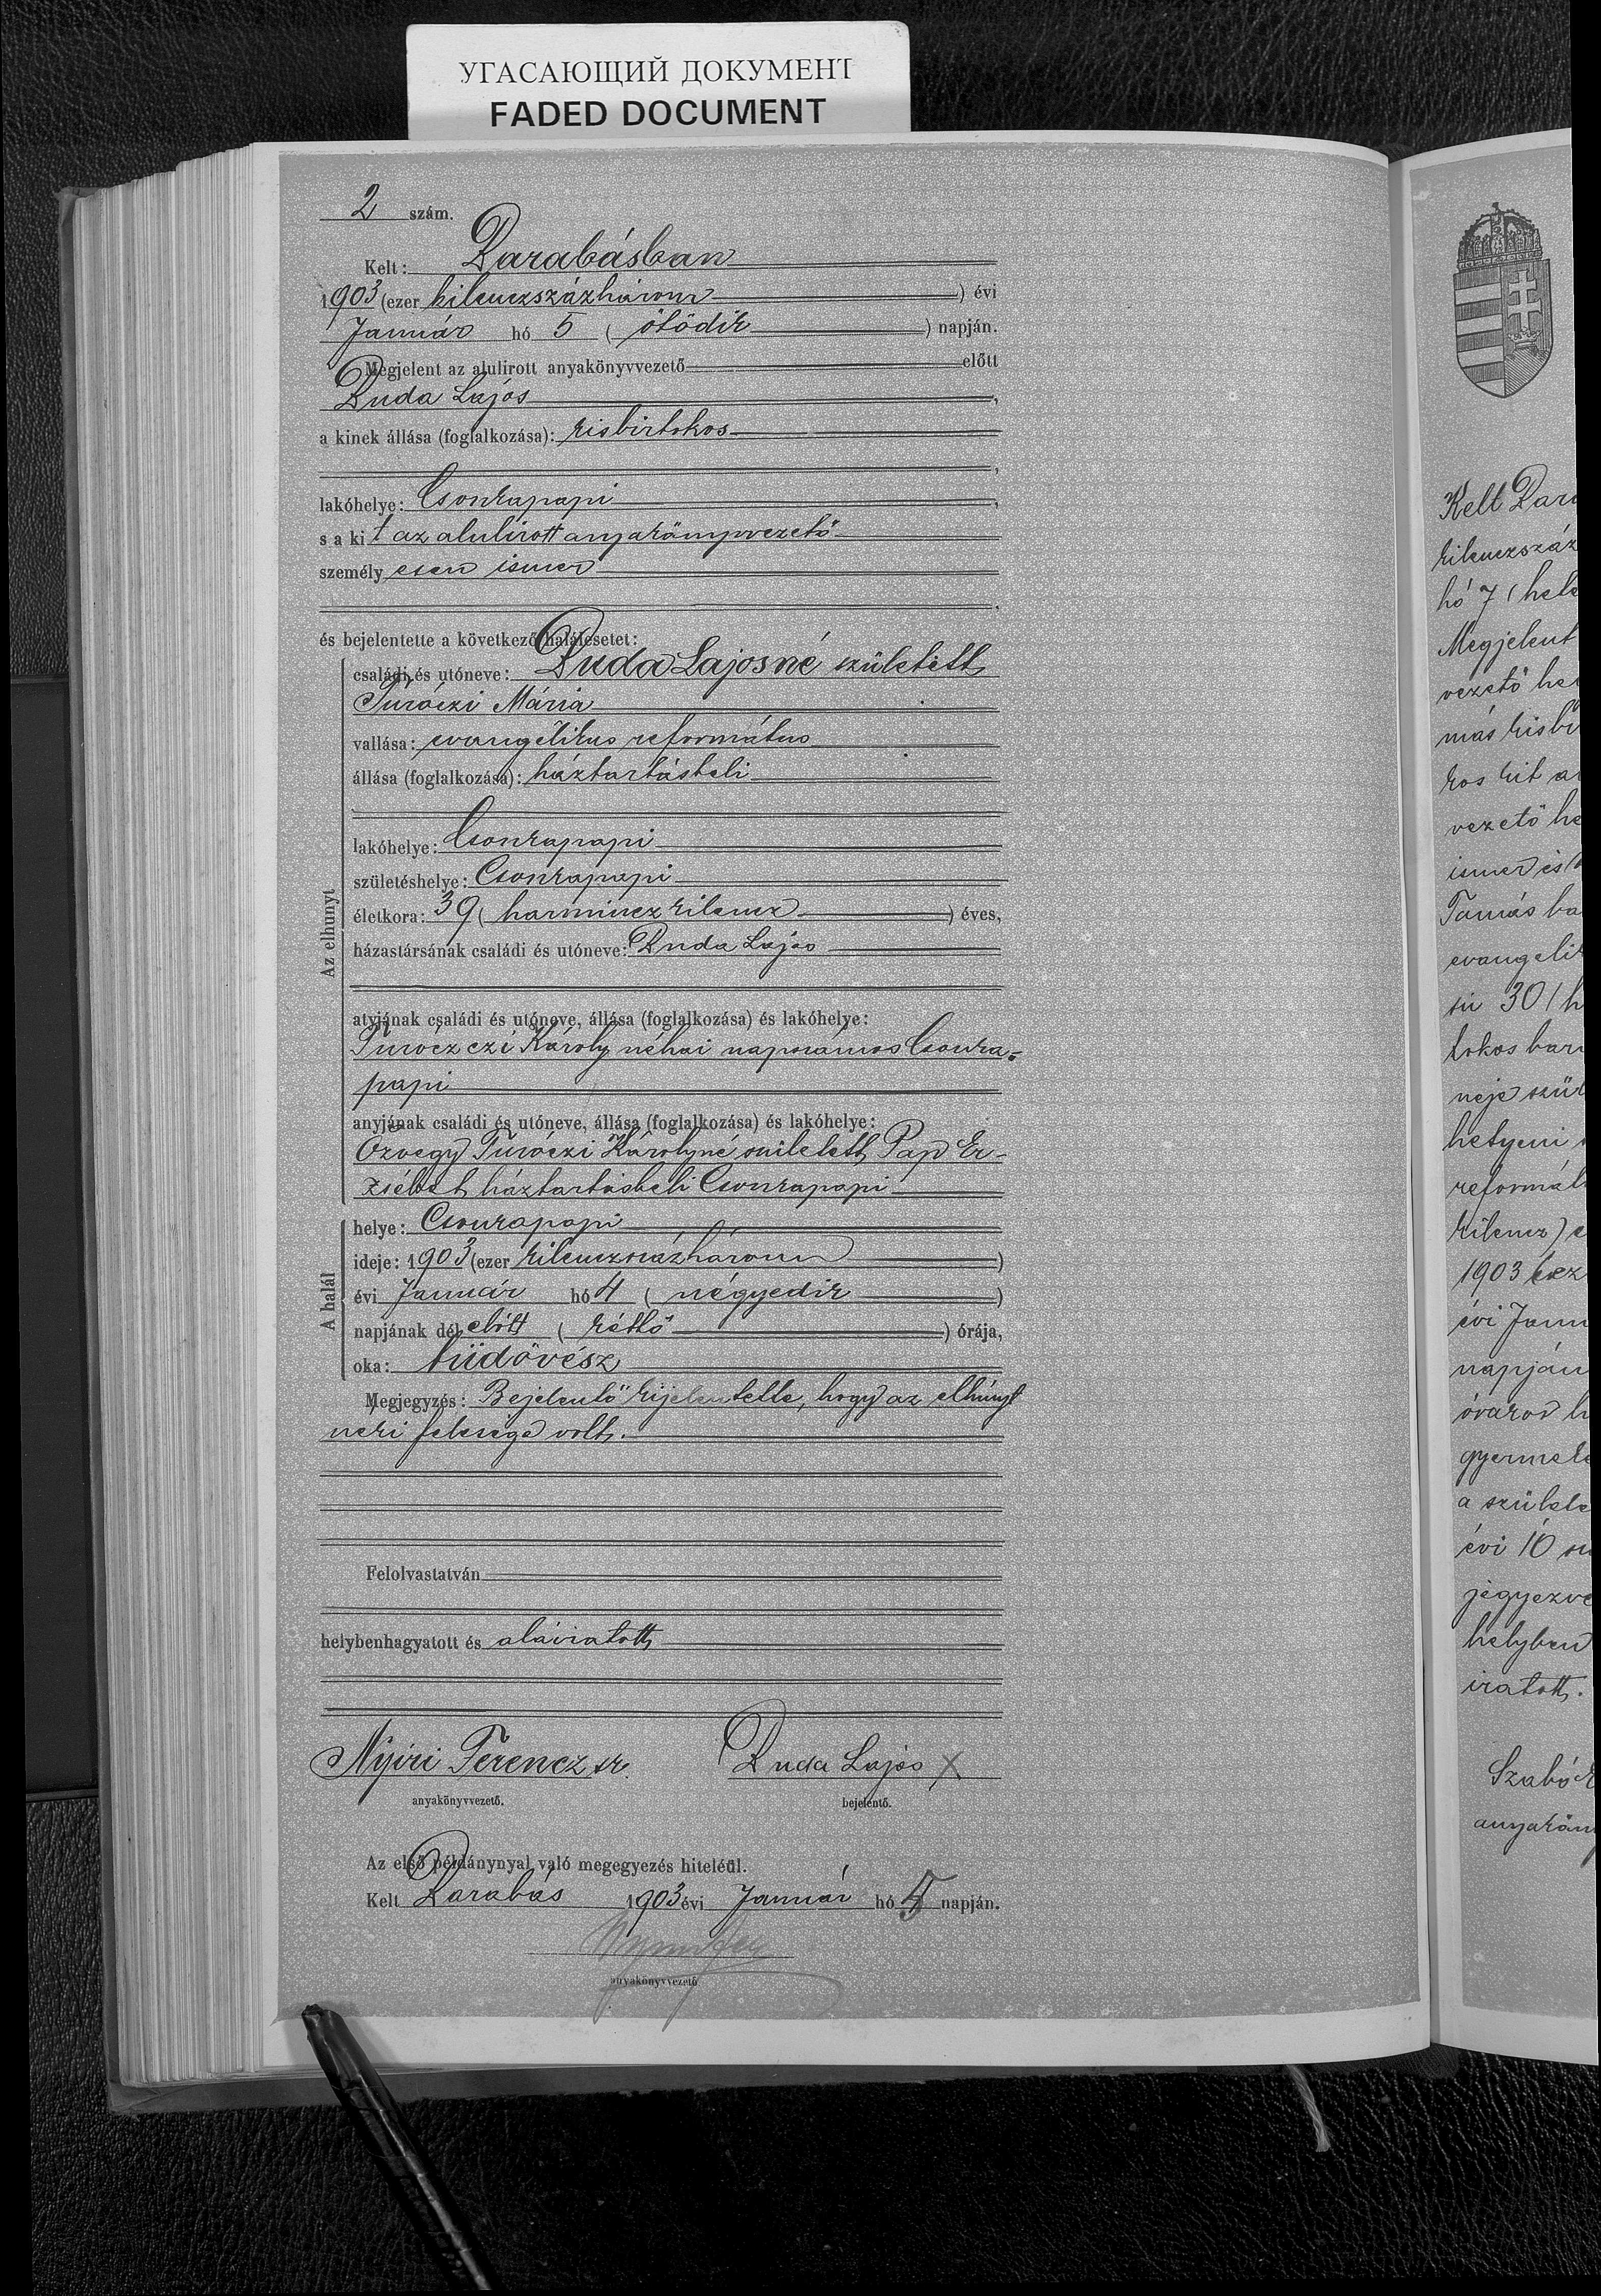 УГАСАЮЩИЙ ДОКУМЕНТ
FADED DOCUMENT
2 szám.
Kelt: Darabásban
1903 (ezer kilenczszázhárom) évi
Január hó 5 (ötödik) napján.
Megjelent az alulirott anyakönyvvezető előtt
Duda Lajos,
a kinek állása (foglalkozása): kisbirtokos
,
lakóhelye: Csonkapapi,
s a kit az alulirott anyakönyvvezető
személyesen ismer
,
és bejelentette a következő halálesetet:
Az elhunyt
családi és utóneve: Duda Lajosné született
Turóczi Mária
vallása: evangelikus református
állása (foglalkozása): háztartásbeli
lakóhelye: Csonkapapi
születéshelye: Csonkapapi
életkora: 39 (harminczkilencz) éves,
házastársának családi és utóneve: Duda Lajos
atyjának családi és utóneve, állása (foglalkozása) és lakóhelye:
Turóczczi Károly néhai napszámos Csonka-
papi
anyjának családi és utóneve, állása (foglalkozása) és lakóhelye:
Özvegy Turóczi Károlyné született Pap Er-
zsébet háztartásbeli Csonkapapi
A halál
helye: Csonkapapi
ideje: 1903 (ezer kilenczszázhárom)
évi Január hó 4 (négyedik)
napjának dél előtt (kettő) órája,
oka: tüdővész
Megjegyzés: Bejelentő kijelentette, hogy az elhúnyt
neki felesége volt.
Felolvastatván
helybenhagyatott és aláiratott
Nyiri Ferencz sk. Duda Lajos X
anyakönyvvezető. bejelentő.
Az első példánynyal való megegyezés hiteléül.
Kelt Darabás 1903 évi Január hó 5 napján.
anyakönyvvezető
Kelt Dara
kilenczszáz
hó 7 (hete
Megjelent
vezető he
más kisbi
kos kit a
vezető he
ismer és
Tamás ba
evangelik
sú 30 (h
tokos bar
neje szül
hetyeni
reformát
kilencz) é
1903 ezer
évi Janu
napján
óvárod h
gyermek
a születe
évi 10
jegyezve
helyben
iratott.
Szabó
anyakön